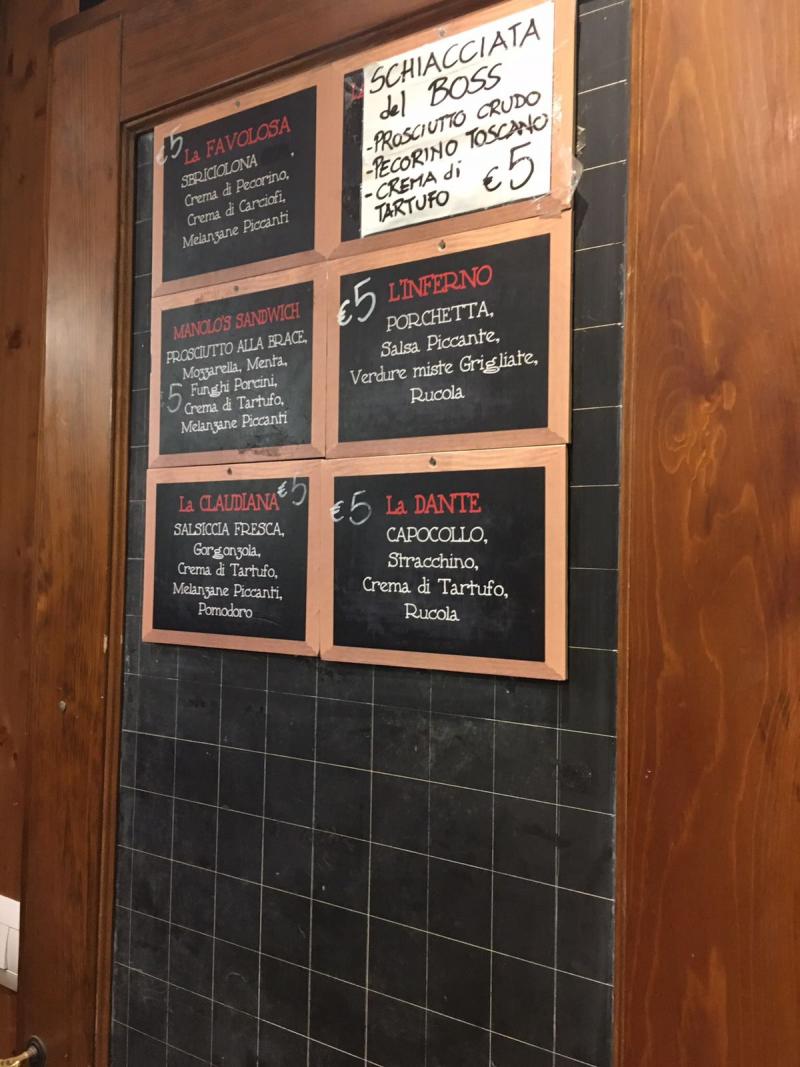 €5
La FAVOLOSA
SBRICIOLONA
Crema di Pecorino,
Crema di Carciofi,
Melanzane Piccanti
SCHIACCIATA
del BOSS
-PROSCIUTTO CRUDO
-PECORINO TOSCANO
-CREMA di
TARTUFO
€5
MANOLO'S SANDWICH
PROSCIUTTO ALLA BRACE,
Mozzarella, Menta,
Funghi Porcini,
5
Crema di Tartufo,
Melanzane Piccanti
€5
L'INFERNO
PORCHETTA,
Salsa Piccante,
Verdure miste Grigliate,
Rucola
La CLAUDIANA
€5
SALSICCIA FRESCA,
Gorgonzola,
Crema di Tartufo,
Melanzane Piccanti,
Pomodoro
€5
La DANTE
CAPOCOLLO,
Stracchino,
Crema di Tartufo,
Rucola